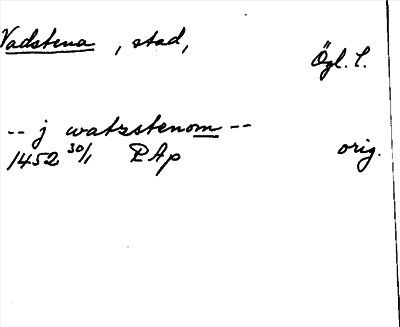 Vadstena, stad,
Ögl. l.
-- j watzstenom --
1452 30/1 RAp orig.